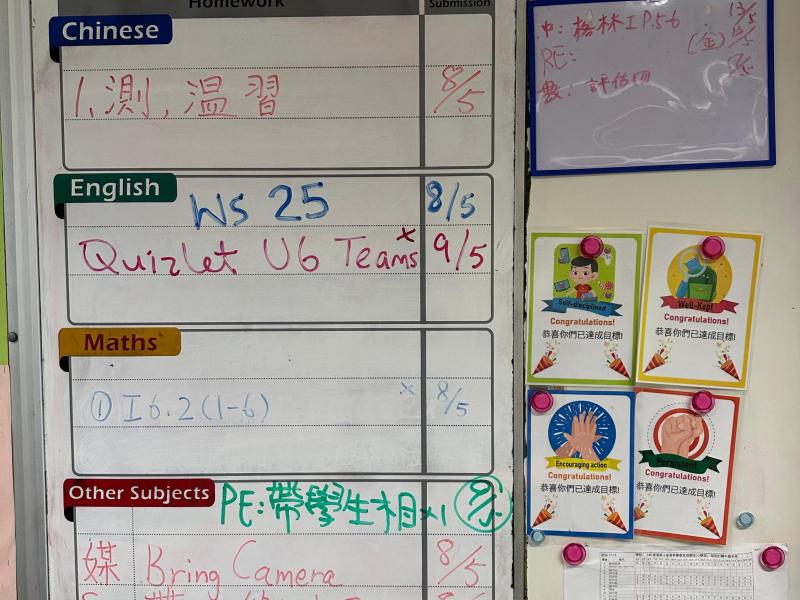 Homework
Submission
Chinese
1. 測, 溫習 8/5
English
WS 25 8/5
Quizlet U6 Teams x 9/5
Maths
① I 6.2 (1-6) x 8/5
Other Subjects
PE: 帶學生相x1 9/5
媒 Bring Camera 8/5
中: 格林 I P.5-6 13/5
RE: (金)
數: 評估
Self-disciplined
Congratulations!
恭喜你們已達成目標!
Well-Kept
Congratulations!
恭喜你們已達成目標!
Encouraging action
Congratulations!
恭喜你們已達成目標!
Persistent
Congratulations!
恭喜你們已達成目標!